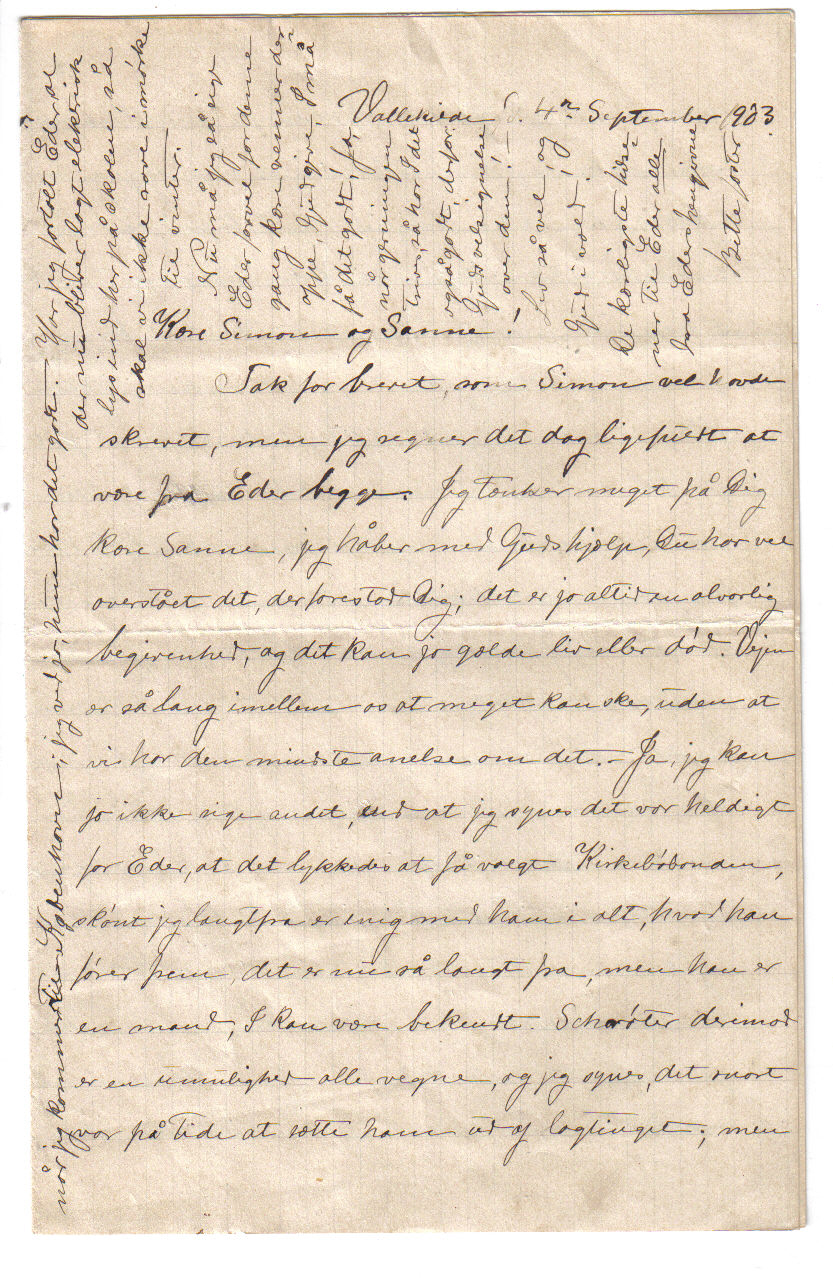 Vallekilde, d. 4n September 1903
Kære Simon og Sanne!
Tak for brevet, som Simon vel havde
skrevet, men jeg regner det dog ligefuldt at
være fra Eder begge. Jeg tænker meget på Dig
kære Sanne, jeg håber med Guds hjælp, Du har vel
overstået det, der forestod Dig; det er jo altid en alvorlig
begivenhed, og det kan jo gælde liv eller død. Vejen
er så lang imellem os at meget kan ske, uden at
vi har den mindste anelse om det. – Ja, jeg kan
jo ikke sige andet, end at jeg synes det var heldigt
for Eder, at det lykkedes at få valgt Kirkebøbonden,
skønt jeg langtfra er enig med ham i alt, hvad han
fører frem, det er nu så langt fra, men han er
en mand, I kan være bekendt. Schrøter derimod
er en umulighed alle vegne, og jeg synes, det snart
var på tide at sætte ham ud af lagtinget; men
når jeg kommer til København, jeg ved jo, hun har det godt. – Har jeg fortalt Eder, at
der nu bliver lagt elektrisk
lys ind her på skolen, så
skal vi ikke sove i mørke
til vinter.
Nu må jeg så sige
Eder farvel for denne
gang kære venner der
oppe, Gud give, I må
få det godt, ja,
når gerningen
trives, så har I det
også godt, derfor
Guds velsignelse
over den! –
Lev så vel, og
Gud i vold!
De kærligste hilse-
ner til Eder alle
fra Eders hengivne
Bette faster